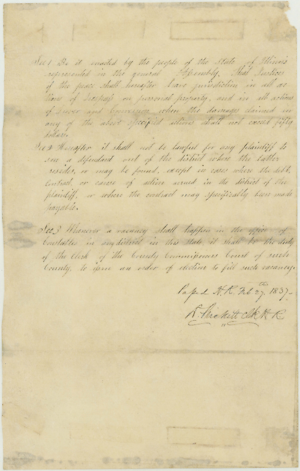 Sec 1 Be it enacted by the people of the State of Illinois
represented in the general Assembly, That Justices
of the peace shall hereafter have jurisdiction in all
of trespass on personal property, and in all actions
of Trover and where the damages claimed in
any of the above actions shall not exceed fifty
dollars.
Hereafter it shall not be lawful for any plaintiff to
sue a defendant out of the district where the latter
resides or may be found, except in cases where the debt,
contract, or cause of action in the district of the
plaintiff, or where the contract may specifically have made
payable.
Sec. 3 Whenever a vacancy shall happen in the office of
Constable in any district in this State it shall be the duty
of the Clerk of the County Commissioners Court of such
County, to issue an order of election to fill such vacancy
H. R. Feb 27th 1837.
Clk H. R